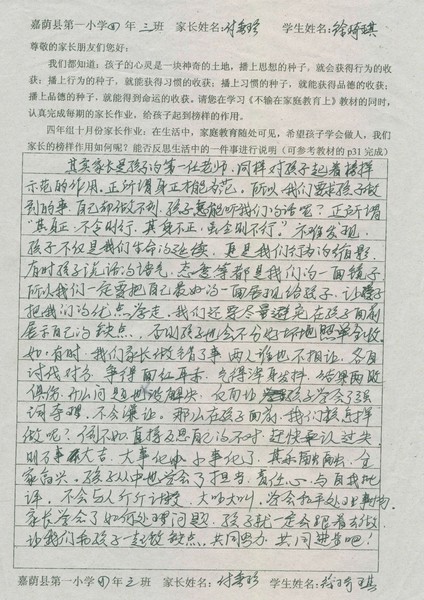 嘉荫县第一小学四年三班 家长姓名：付春玲 学生姓名：徐琦琪
尊敬的家长朋友们您好：
我们都知道：孩子的心灵是一块神奇的土地，播上思想的种子，就会获得行为的收
获；播上行为的种子，就能获得习惯的收获；播上习惯的种子，就能获得品德的收获；
播上品德的种子，就能得到命运的收获。请您在学习《不输在家庭教育上》教材的同时，
认真完成每期的家长作业，给孩子起到榜样的作用。
四年组十月份家长作业：在生活中，家庭教育随处可见，希望孩子学会做人，我们
家长的榜样作用如何呢？能否反思生活中的一件事进行说明（可参考教材的 p31 完成）
其实家长是孩子的第一任老师，同样对孩子起着榜样
示范的作用。正所谓身正才能为范。所以我们要求孩子做
到的事，自己却做不到，孩子怎能听我们的话呢？正所谓
“其身正，不令则行，其身不正，虽令则不行”。不难发现，
孩子不仅是我们生命的延续，更是我们行为的缩影，
有时孩子说话的语气、态度等都是我们的一面镜子
所以我们一定要把自己最好的一面展现给孩子，让孩子
把我们的优点学走，我们还要尽量避免在孩子面前
展示自己的缺点，否则孩子也会不分好坏地照单全收。
如：有时，我们家长做错了事，两人谁也不相让，各自
讨伐对方，争得面红耳赤，气得浑身发抖，结果两败
俱伤，问题也没解决，反而让孩子学会了强
词夺理，不会谦让。那么在孩子面前，我们该怎样
做呢？倒不如直接反思自己的不对，赶快承认过失
则万事大吉，大事化小，小事化了，其乐融融，全
家高兴。孩子从中也学会了担当、责任心，与自我批
评。不会与人斤斤计较，大吵大叫，学会和平处理事情。
家长学会了如何处理问题，孩子就一定会跟着去做，
让我们和孩子一起改缺点，共同努力，共同进步吧！
嘉荫县第一小学四年三班 家长姓名：付春玲 学生姓名：徐琦琪